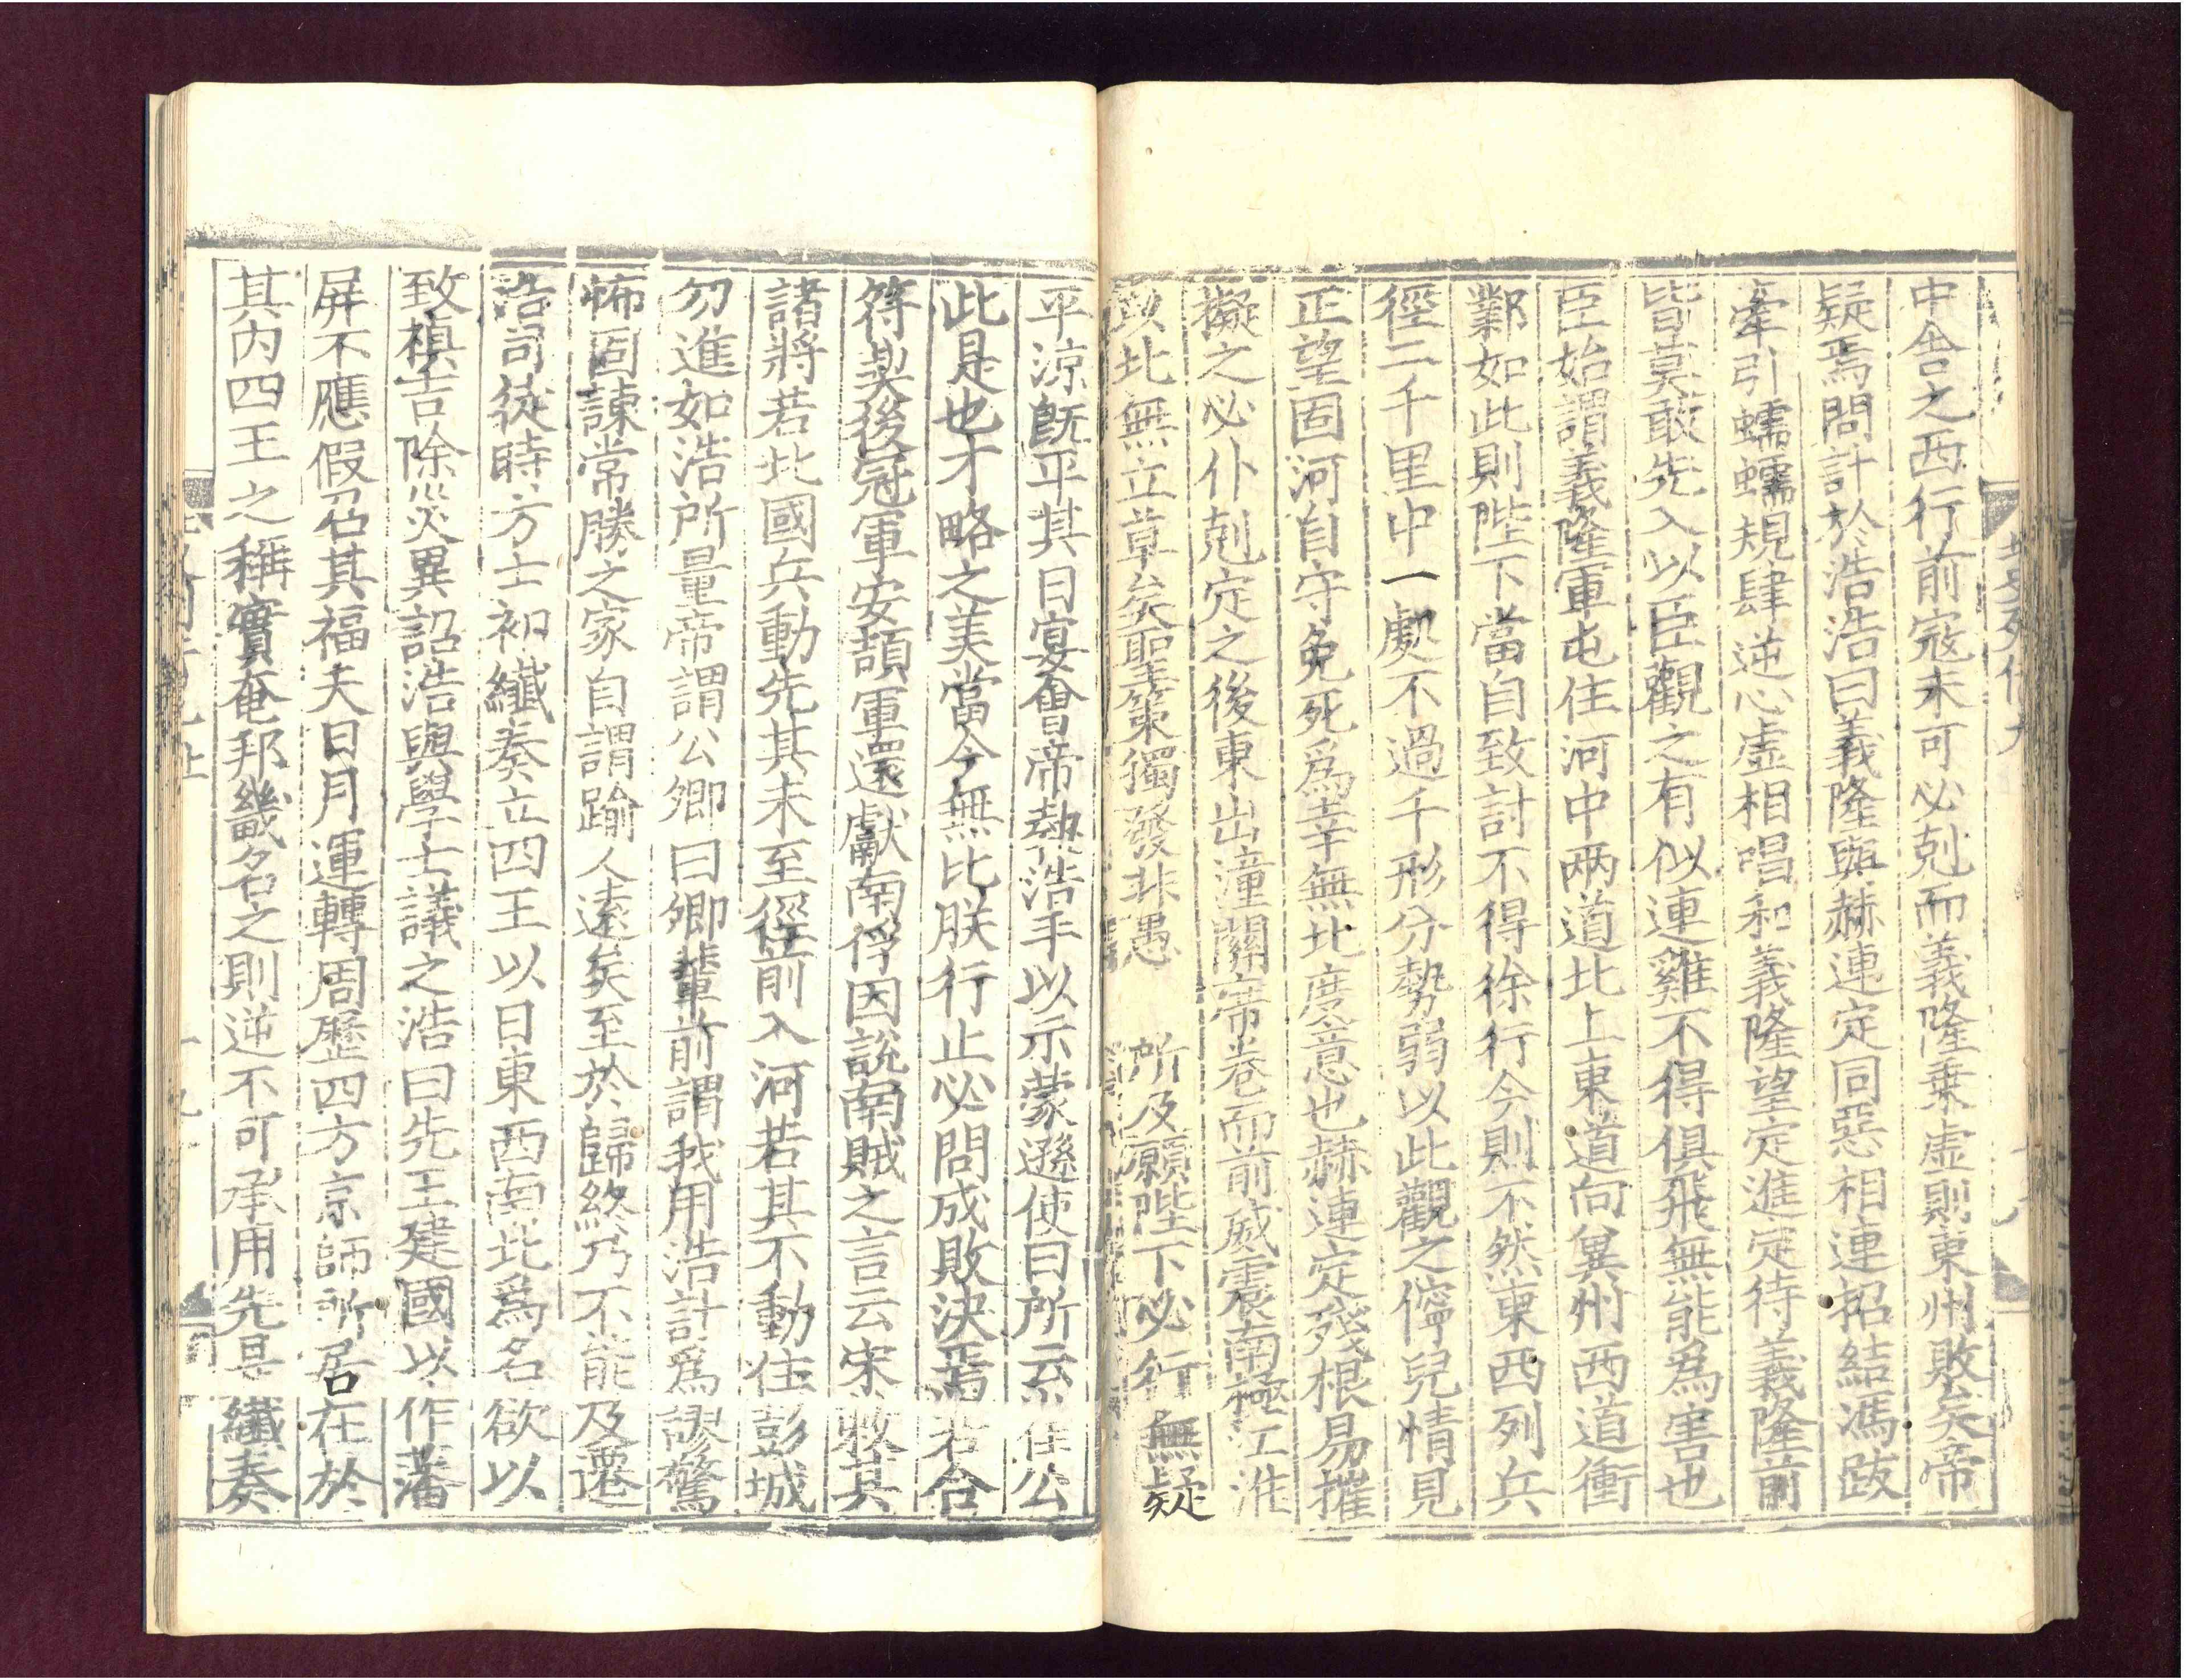 中舍之西行前寇未可必剋而義隆乗虛則東州敗矣帝
疑焉問計於浩浩曰義隆與赫連定同惡相連招結馮跋
牽引蠕蠕規肆逆心虛相唱和義隆望定進定待義隆前
皆莫敢先入以臣觀之有似連雞不得俱飛無能爲害也
臣始謂義隆軍屯住河中兩道北上東道向兾州西道衝
鄴如此則陛下當自致討不得徐行今則不然東西列兵
徑二千里中一處不過千形分勢弱以此觀之儜兒情見
正望固河自守免死爲幸無北度意也赫連定殘根易摧
擬之必仆剋定之後東出潼關席卷而前威震南極江淮
以北無立草矣聖策獨發非愚 所及願陛下必行無疑
平涼旣平其日宴會帝執浩手以示蒙遜使曰所云崔公
此是也才略之美當今無比朕行止必問成敗決焉若合
符契後冠軍安頡軍還獻南俘因說南賊之言云宋敕其
諸將若北國兵動先其未至徑前入河若其不動住彭城
勿進如浩所量帝謂公卿曰卿輩前謂我用浩計爲謬驚
怖固諫常勝之家自謂踰人遠矣至於歸終乃不能及遷
浩司徒時方士祁纖奏立四王以日東西南北爲名欲以
致禎吉除災異詔浩與學士議之浩曰先王建國以作藩
屏不應假名其福夫日月運轉周歷四方京師所居在於
其内四王之稱實奄邦畿名之則逆不可承用先是纖奏